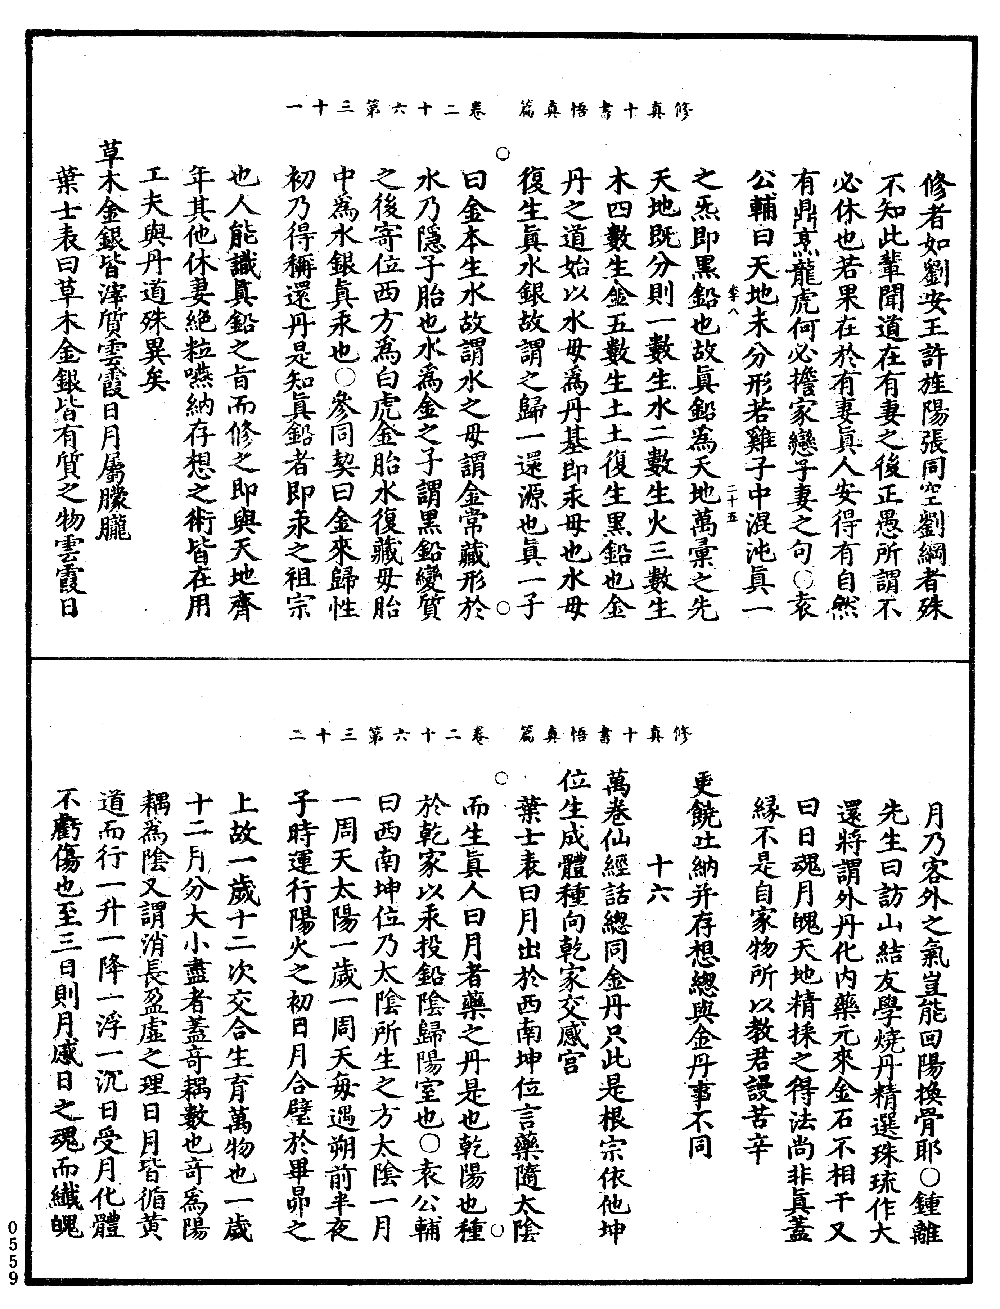 修真十書悟真篇　卷二十六第三十一
修者如劉安王許旌陽張司空劉綱者殊
不知此輩聞道在有妻之後正愚所謂不
必休也若果在於有妻真人安得有自然
有鼎烹龍虎何必擔家戀子妻之句○袁
公輔曰天地未分形若雞子中混沌真一
之炁即黑鉛也故真鉛為天地萬彙之先
天地既分則一數生水二數生火三數生
木四數生金五數生土土復生黑鉛也金
丹之道始以水母為丹基即汞母也水母
復生真水銀故謂之歸一還源也真一子
曰金本生水故謂水之母謂金常藏形於
水乃隱子胎也水為金之子謂黑鉛變質
之後寄位西方為白虎金胎水復藏母胎
中為水銀真汞也○參同契曰金來歸性
初乃得稱還丹是知真鉛者即汞之祖宗
也人能識真鉛之旨而修之即與天地齊
年其他休妻絕粒嚥納存想之術皆在用
工夫與丹道殊異矣
草木金銀皆滓質雲霞日月屬朦朧
葉士表曰草木金銀皆有質之物雲霞日
二十五
修真十書悟真篇　卷二十六第三十二
月乃客外之氣豈能回陽換骨耶○鍾離
先生曰訪山結友學燒丹精選珠琉作大
還將謂外丹化內藥元來金石不相干又
曰日魂月魄天地精採之得法尚非真蓋
緣不是自家物所以教君謾苦辛
更饒吐納并存想總與金丹事不同
十六
萬卷仙經話總同金丹只此是根宗依他坤
位生成體種向乾家交感宮
葉士表曰月出於西南坤位言藥隨太陰
而生真人曰月者藥之丹是也乾陽也種
於乾家以汞投鉛陰歸陽室也○袁公輔
曰西南坤位乃太陰所生之方太陰一月
一周天太陽一歲一周天每遇朔前半夜
子時運行陽火之初日月合璧於畢昴之
上故一歲十二次交合生育萬物也一歲
十二月分大小盡者蓋奇耦數也奇為陽
耦為陰又謂消長盈虛之理日月皆循黃
道而行一升一降一浮一沉日受月化體
不虧傷也至三日則月感日之魂而纖魄
0559